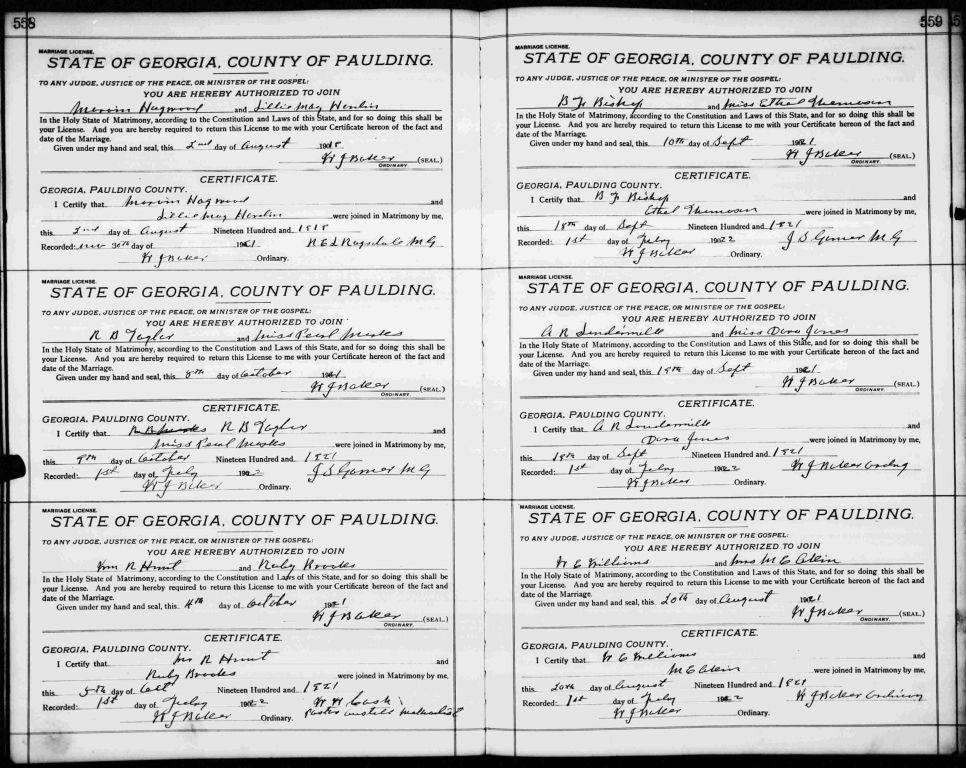 558
MARRIAGE LICENSE.
STATE OF GEORGIA, COUNTY OF PAULDING.
TO ANY JUDGE, JUSTICE OF THE PEACE, OR MINISTER OF THE GOSPEL:
YOU ARE HEREBY AUTHORIZED TO JOIN
Hagwood and Lillie May
In the Holy State of Matrimony, according to the Constitution and Laws of this State, and for so doing this shall be
your License. And you are hereby required to return this License to me with your Certificate hereon of the fact and
date of the Marriage.
Given under my hand and seal, this 2nd day of August 1918
W J Baker (SEAL.)
ORDINARY.
CERTIFICATE.
GEORGIA, PAULDING COUNTY.
I Certify that Hagwood and
Lillie May were joined in Matrimony by me,
this 2nd day of August Nineteen Hundred and 1918
Recorded: Nov 30th day of 1921 Ragsdale M G
W J Baker Ordinary.
MARRIAGE LICENSE.
STATE OF GEORGIA, COUNTY OF PAULDING.
TO ANY JUDGE, JUSTICE OF THE PEACE, OR MINISTER OF THE GOSPEL:
YOU ARE HEREBY AUTHORIZED TO JOIN
R B Taylor and Miss Pearl Meeks
In the Holy State of Matrimony, according to the Constitution and Laws of this State, and for so doing this shall be
your License. And you are hereby required to return this License to me with your Certificate hereon of the fact and
date of the Marriage.
Given under my hand and seal, this 8th day of October 1921
W J Baker (SEAL.)
ORDINARY.
CERTIFICATE.
GEORGIA, PAULDING COUNTY.
I Certify that R B Taylor and
Miss Pearl Meeks were joined in Matrimony by me,
this 9th day of October Nineteen Hundred and 1921
Recorded: 1st day of Feby 1922 J S Garner M G
W J Baker Ordinary.
MARRIAGE LICENSE.
STATE OF GEORGIA, COUNTY OF PAULDING.
TO ANY JUDGE, JUSTICE OF THE PEACE, OR MINISTER OF THE GOSPEL:
YOU ARE HEREBY AUTHORIZED TO JOIN
Wm R Hunt and Ruby Brooks
In the Holy State of Matrimony, according to the Constitution and Laws of this State, and for so doing this shall be
your License. And you are hereby required to return this License to me with your Certificate hereon of the fact and
date of the Marriage.
Given under my hand and seal, this 4th day of October 1921
W J Baker (SEAL.)
ORDINARY.
CERTIFICATE.
GEORGIA, PAULDING COUNTY.
I Certify that Wm R Hunt and
Ruby Brooks were joined in Matrimony by me,
this 5th day of Oct Nineteen Hundred and 1921
Recorded: 1st day of Feby 1922 W H Cash
W J Baker Ordinary. Pastor Methodist
559
MARRIAGE LICENSE.
STATE OF GEORGIA, COUNTY OF PAULDING.
TO ANY JUDGE, JUSTICE OF THE PEACE, OR MINISTER OF THE GOSPEL:
YOU ARE HEREBY AUTHORIZED TO JOIN
B F Bishop and Miss Ethel
In the Holy State of Matrimony, according to the Constitution and Laws of this State, and for so doing this shall be
your License. And you are hereby required to return this License to me with your Certificate hereon of the fact and
date of the Marriage.
Given under my hand and seal, this 10th day of Sept 1921
W J Baker (SEAL.)
ORDINARY.
CERTIFICATE.
GEORGIA, PAULDING COUNTY.
I Certify that B F Bishop and
Ethel were joined in Matrimony by me,
this 18th day of Sept Nineteen Hundred and 1921
Recorded: 1st day of Feby 1922 J S Garner M G
W J Baker Ordinary.
MARRIAGE LICENSE.
STATE OF GEORGIA, COUNTY OF PAULDING.
TO ANY JUDGE, JUSTICE OF THE PEACE, OR MINISTER OF THE GOSPEL:
YOU ARE HEREBY AUTHORIZED TO JOIN
A R and Miss Dora Jones
In the Holy State of Matrimony, according to the Constitution and Laws of this State, and for so doing this shall be
your License. And you are hereby required to return this License to me with your Certificate hereon of the fact and
date of the Marriage.
Given under my hand and seal, this 19th day of Sept 1921
W J Baker (SEAL.)
ORDINARY.
CERTIFICATE.
GEORGIA, PAULDING COUNTY.
I Certify that A R and
Dora Jones were joined in Matrimony by me,
this 19th day of Sept Nineteen Hundred and 1921
Recorded: 1st day of Feby 1922 W J Baker Ordny
W J Baker Ordinary.
MARRIAGE LICENSE.
STATE OF GEORGIA, COUNTY OF PAULDING.
TO ANY JUDGE, JUSTICE OF THE PEACE, OR MINISTER OF THE GOSPEL:
YOU ARE HEREBY AUTHORIZED TO JOIN
W E Williams and Mrs M E Akin
In the Holy State of Matrimony, according to the Constitution and Laws of this State, and for so doing this shall be
your License. And you are hereby required to return this License to me with your Certificate hereon of the fact and
date of the Marriage.
Given under my hand and seal, this 20th day of August 1921
W J Baker (SEAL.)
ORDINARY.
CERTIFICATE.
GEORGIA, PAULDING COUNTY.
I Certify that W E Williams and
M E Akin were joined in Matrimony by me,
this 20th day of August Nineteen Hundred and 1921
Recorded: 1st day of Feby 1922 W J Baker Ordinary
W J Baker Ordinary.